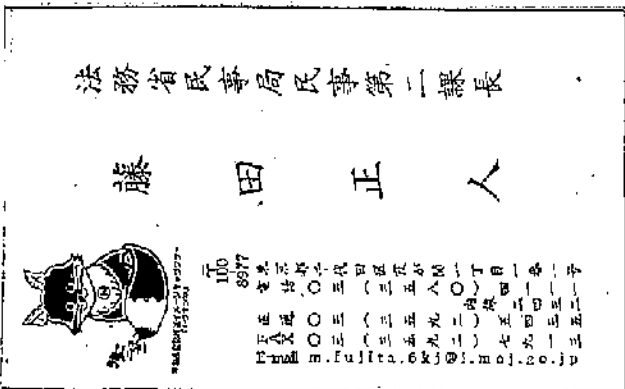 法務省民事局民事第二課長
藤田正人
〒100
8977
東京都千代田区霞が関一丁目一番一号
電話 〇三(三五八〇)四一一一
内線 二四三二
直通 〇三(三五九二)五四
FAX 〇三(三五九二)七九
E-mail m.fujita.6kj@i.moj.go.jp